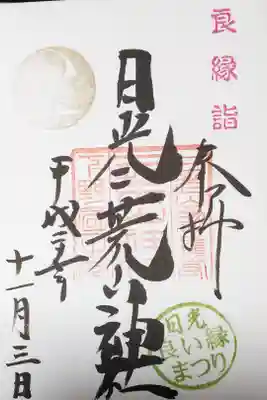 良縁詣
奉拝
日光二荒山神社
平成
十一月三日
日光
良い縁
まつり